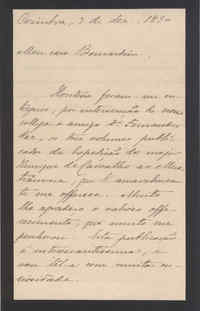 Coimbra, 3 de dez. 1890
Meu caro Bernardino.
Hontem foram-me en-
tregues, por intervenção do nosso
collega e amigo Dr. Fernandes
Vaz, os tres volumes publi-
cados da Expedição do major
Henrique de Carvalho ao
que amavelmen-
te me offerece. Muito
lhe agradeço o valioso offe-
recimento, que muito me
penhorou. Esta publicação
é interessantissima, e
vou lêl-a com muita cu-
riosidade.